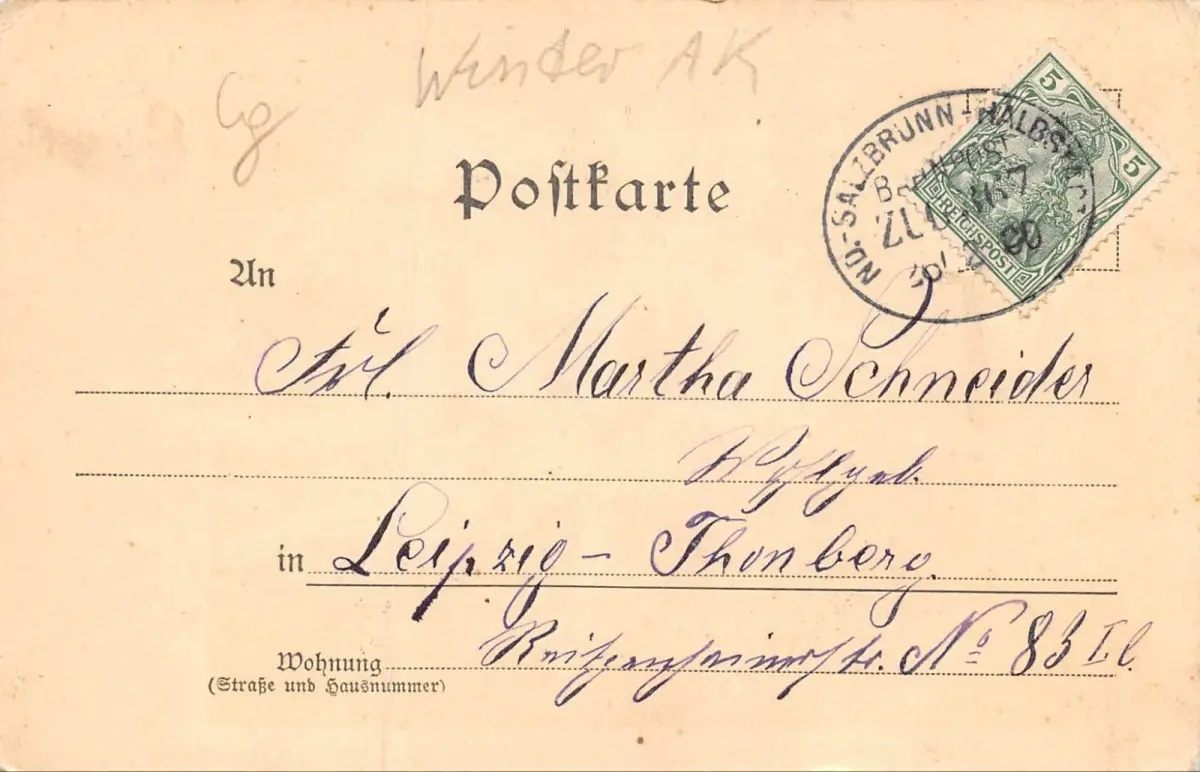 Winter AK
Postkarte
5
5
REICHSPOST
ND.-SALZBRUNN-HALBSTADT
BAHNPOST
ZUG
An
Frl. Martha Schneider
Wohlgeb.
in Leipzig – Thonberg.
Wohnung Reitzenhainerstr. No 83 I l.
(Straße und Hausnummer)